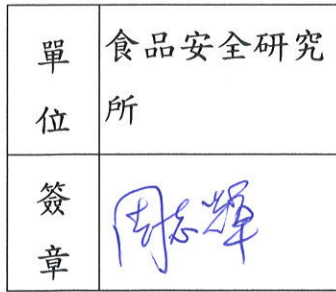 單位
食品安全研究
所
簽章
周志輝